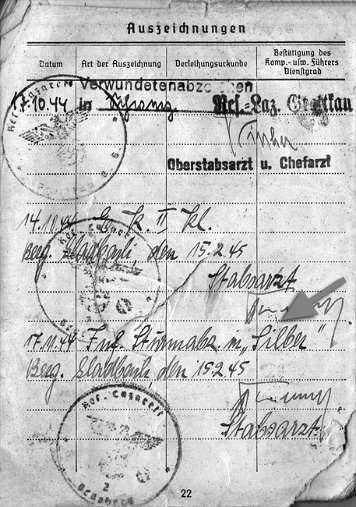 Auszeichnungen
Datum Art der Auszeichnung Verleihungsurkunde Bestätigung des Komp.- usw. Führers Dienstgrad
Verwundetenabzeichen
17.10.44 in Schwarz Res.-Laz. Grottkau
Oberstabsarzt u. Chefarzt
14.10.44 E. K. II Kl.
Berg. Gladbach, den 15.2.45
Stabsarzt
17.11.44 Inf. Sturmabz. in „Silber"
Berg. Gladbach, den 15.2.45
Stabsarzt.
Res. Lazarett
2
Bensberg
22